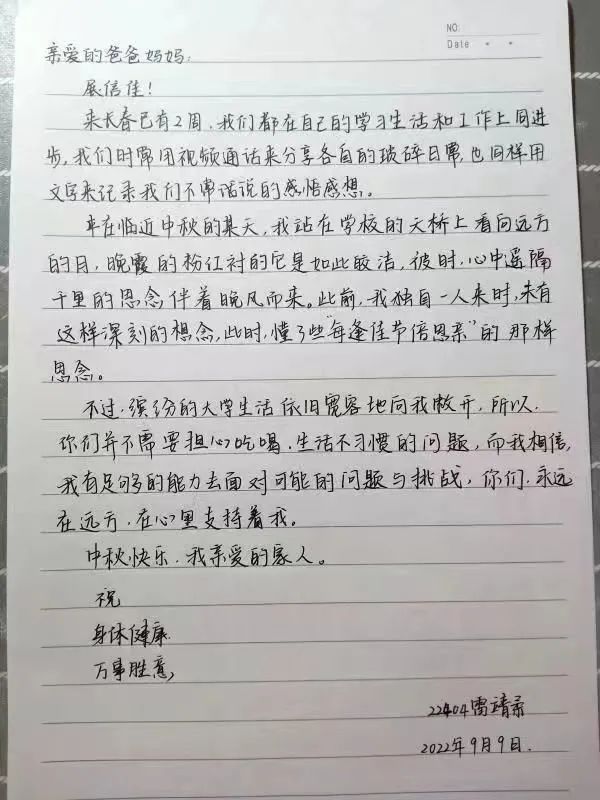 NO:
Date
亲爱的爸爸妈妈:
展信佳!
来长春已有2周,我们都在自己的学习生活和工作上同进
步,我们时常用视频通话来分享各自的琐碎日常,也同样用
文字来记录我们不常话说的感悟感想。
早在临近中秋的某天,我站在学校的天桥上看向远方
的月,晚霞的粉红衬的它是如此皎洁,彼时,心中遥隔
千里的思念伴着晚风而来。此前,我独自一人来时,未有
这样深刻的想念,此时,懂了些"每逢佳节倍思亲"的那样
思念。
不过,缤纷的大学生活依旧宽容地向我敞开,所以,
你们并不需要担心吃喝、生活不习惯的问题,而我相信,
我有足够的能力去面对可能的问题与挑战,你们,永远
在远方,在心里支持着我。
中秋快乐,我亲爱的家人。
祝
身体健康
万事胜意,
22404雷靖
2022年9月9日.